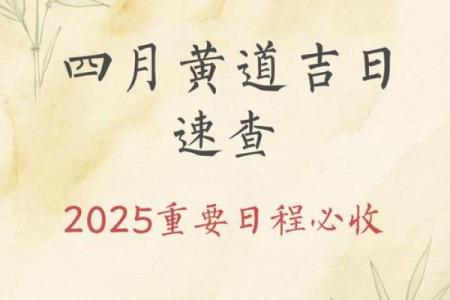 四月黄道吉日
速查
2025重要日程必收